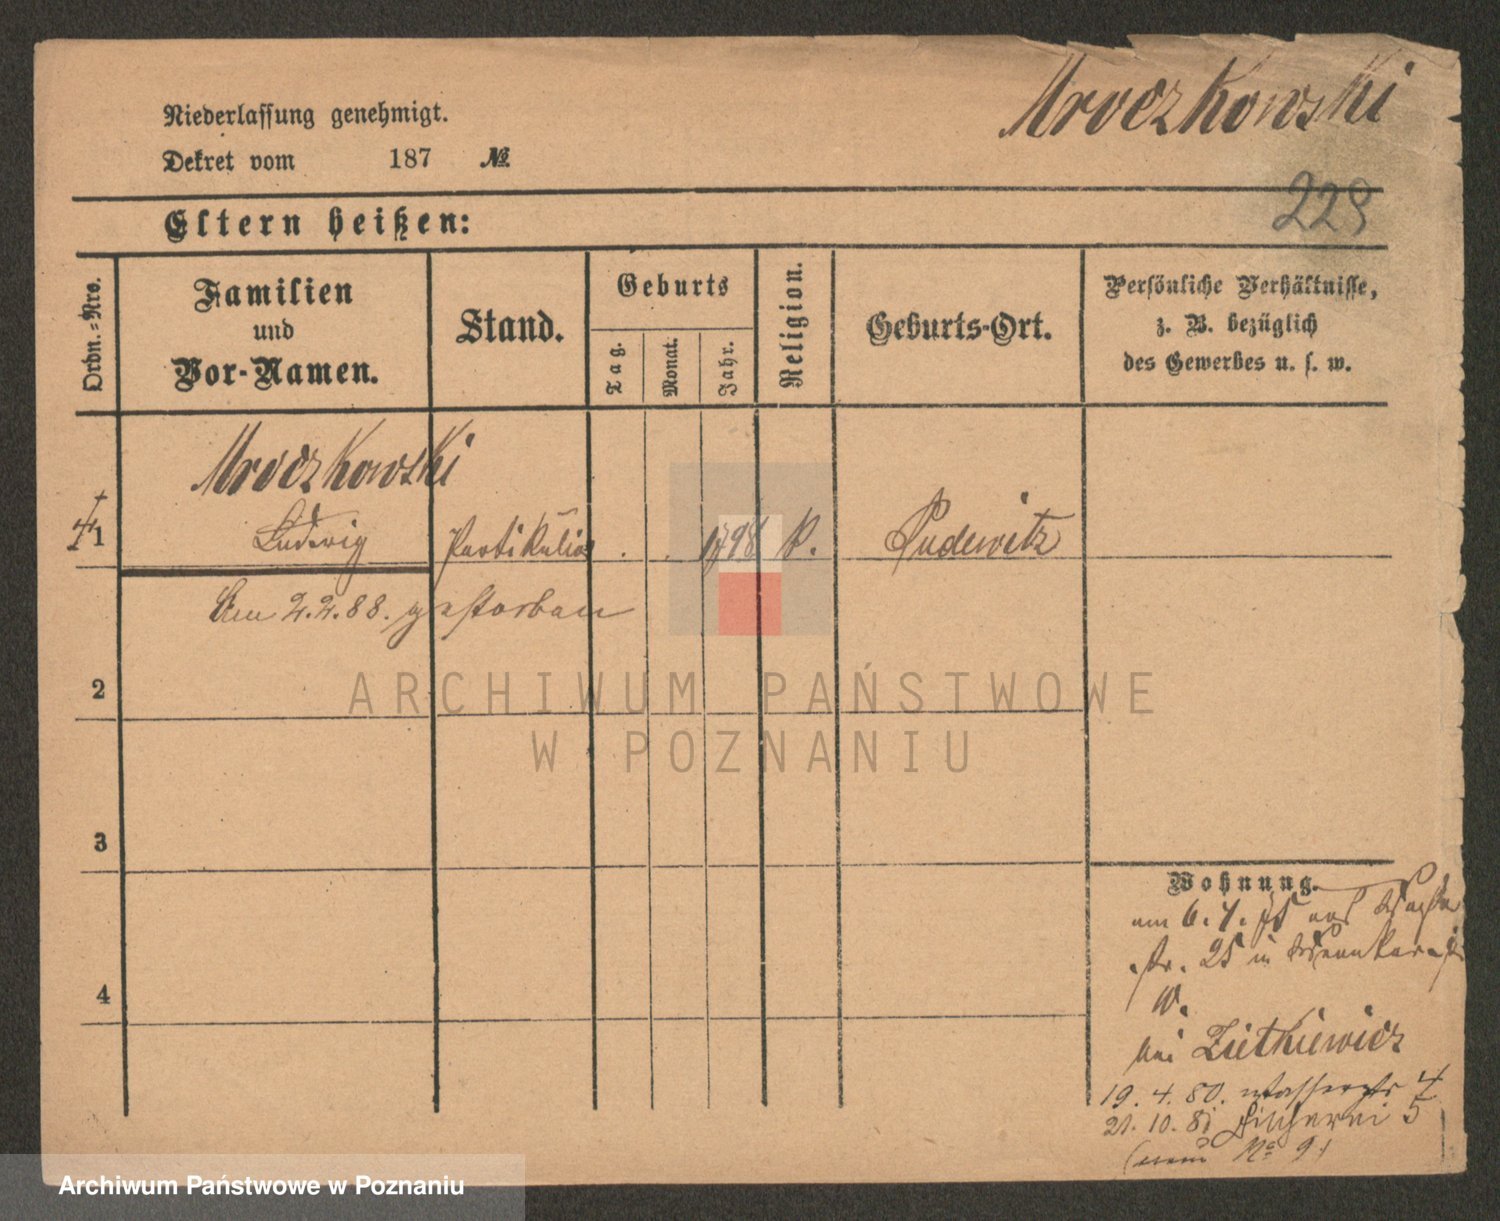 Mroczkowski
Niederlassung genehmigt.
Dekret vom 187 №
229
Eltern heißen:
Ordn.=Nrs.
Familien
und
Vor-Namen.
Stand.
Geburts
Tag.
Monat.
Jahr.
Religion.
Geburts-Ort.
Persönliche Verhältnisse,
z. B. bezüglich
des Gewerbes u. s. w.
Mroczkowski
† 1 Ludwig Partikülier . . 1798 k. Pudewitz
Am 2.2.88. gestorben
2
3
4
Wohnung.
am 6. 4. aus
str. 25 in
W.
bei Zietkiewicz
19. 4. 80. Wasserstr 4
21. 10. 81 Fischerei 5
(neue No 9)
ARCHIWUM PAŃSTWOWE
W POZNANIU
Archiwum Państwowe w Poznaniu